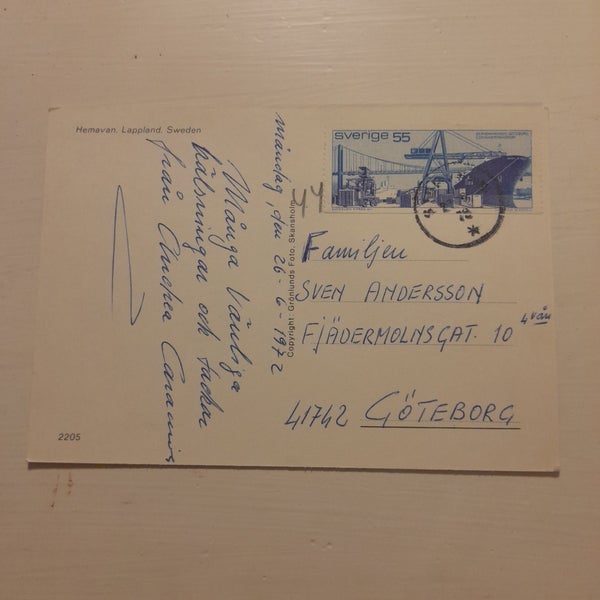 Hemavan. Lappland. Sweden
måndag, den 26-6-1972
Många vänliga
hälsningar och tackar
från Andrea
Copyright: Grönlunds Foto, Skansholm
44
sverige 55
Familjen
SVEN ANDERSSON
FJÄDERMOLNSGAT. 10
4 vån
41742 GÖTEBORG
2205